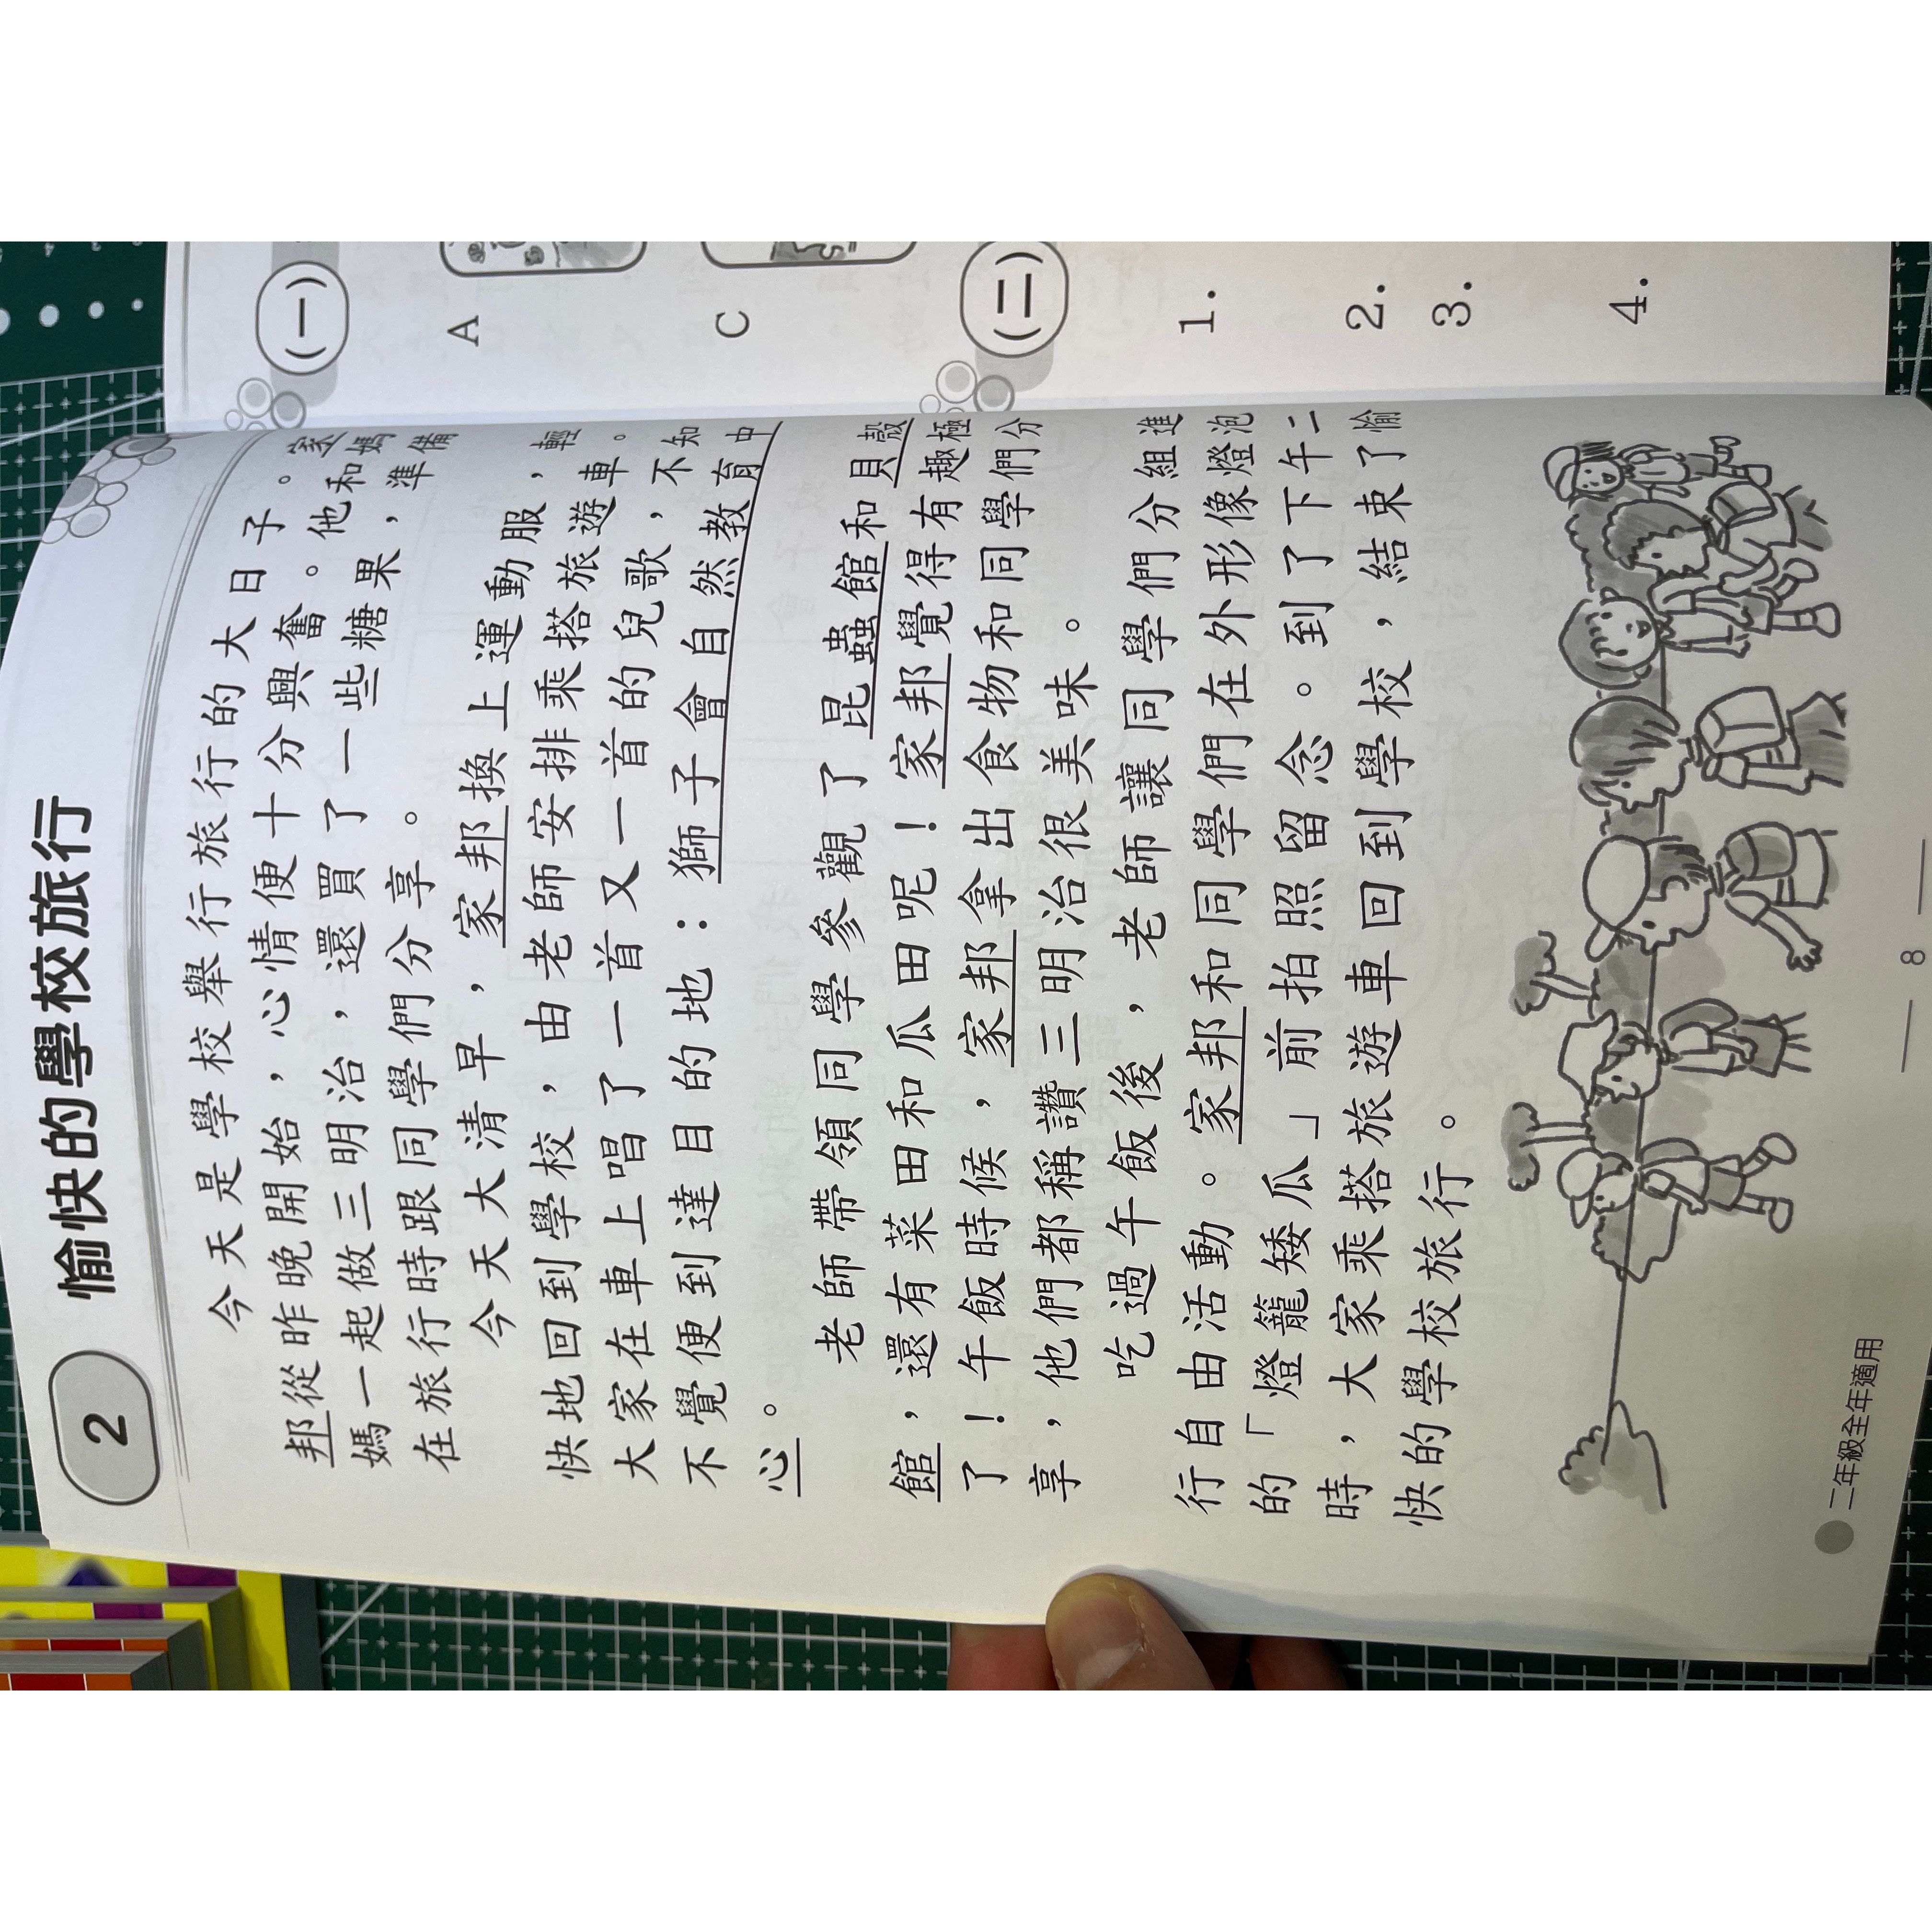 2
愉快的學校旅行
今天是學校舉行旅行的大日子。家
邦從昨晚開始，心情便十分興奮。他和媽
媽一起做三明治，還買了一些糖果，準備
在旅行時跟同學們分享。
今天大清早，家邦換上運動服，輕
快地回到學校，由老師安排乘搭旅遊車。
大家在車上唱了一首又一首的兒歌，不知
不覺便到達目的地：獅子會自然教育中
心。
老師帶領同學參觀了昆蟲館和貝殼
館，還有菜田和瓜田呢！家邦覺得有趣極
了！午飯時候，家邦拿出食物和同學們分
享，他們都稱讚三明治很美味。
吃過午飯後，老師讓同學們分組進
行自由活動。家邦和同學們在外形像燈泡
的「燈籠矮瓜」前拍照留念。到了下午二
時，大家乘搭旅遊車回到學校，結束了愉
快的學校旅行。
二年級全年適用
8
(一)
A
C
(二)
1.
2.
3.
4.